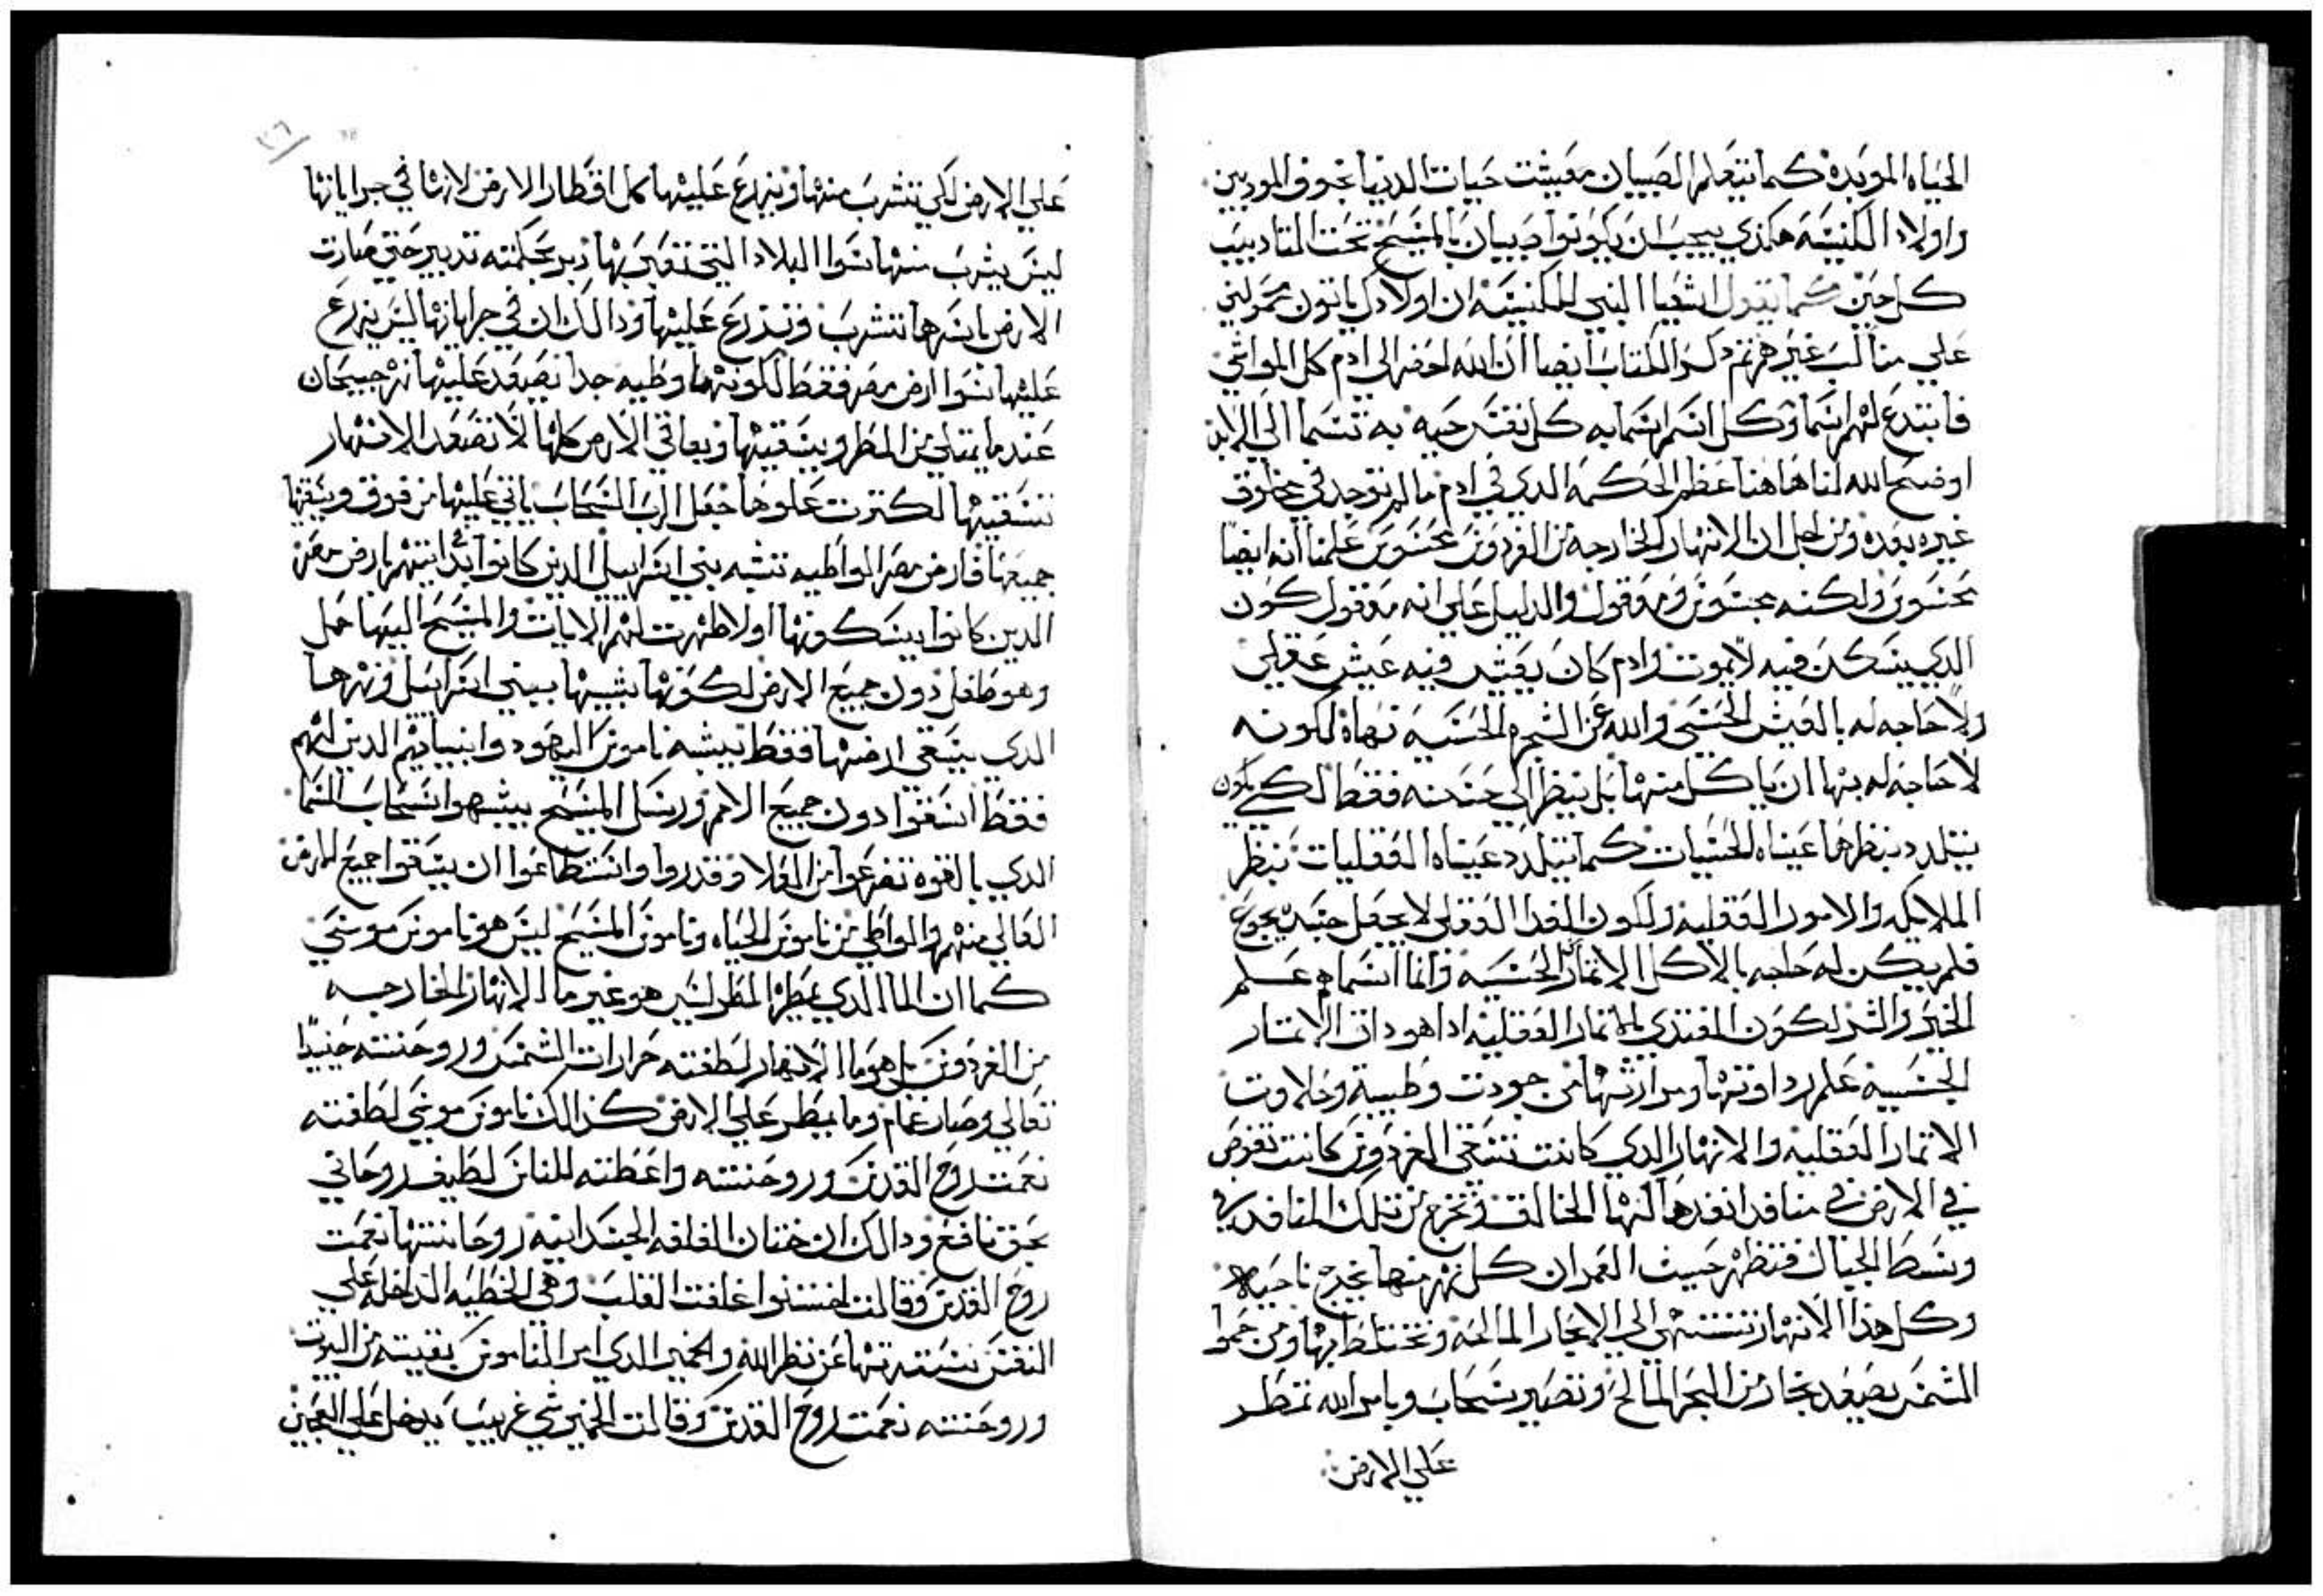 الحياه الموبده كما يتعلم الصبيان معيشت حيات الدنيا بخوف المودبين
واولاد الكنيسه هكذي يجب ان يكونوا صبيان بالمسيح تحت التاديب
كل حين كما يقول اشعيا النبي للكنيسه ان اولادك ياتون محمولين
علي مناكب غيرهم ثم دكر الكتاب ايضا ان الله احضر الي ادم كل المواشي
فابتدع لهم اسما وكل اسم اسماه به كل نفس حيه به تسما الي الابد
اوضح الله لنا هاهنا عظم الحكمه الدي في ادم ما لم توجد في مخلوق
غيره بعده ومن اجل ان الانهار الخارجه من الفردوس محسوس علمنا انه ايضا
محسوس ولكنه محسوس ومعقول والدليل علي انه معقول كون
الدي يسكن فيه لا يموت وادم كان يعيش فيه عيش عقلي
ولا حاجه له بالعيش الحسي والله عن الشجره الحسيه نهاه لكونه
لا حاجه له بها ان ياكل منها بل ينظر الي حسنه فقط لكي يكون
يتلدد بنظرها عيناه الحسيات كما تتلدد عيناه العقليات بنظر
الملايكه والامور العقليه ولكون الغدا العقلي لا يجعل جسده يجوع
فلم يكن له حاجه بالاكل الاتمار الحسيه وانما اسماه علم
الخير والشر لكون المغتدي بالاتمار العقليه ادا هو داق الاتمار
الحسيه علم رداوتها ومرارتها من جودت وطيبة وحلاوت
الاتمار العقليه والانهار الدي كانت تسقي الفردوس كانت تغوص
في الارض في منافد انفدها لها الخالق وتخرج من تلك المنافد في
وسط الجبال فتظهر حيث العمران كل نهر منها يخرج ناحيه
وكل هدا الانهار تنتهي الي الابحار المالحه وتختلط بها ومن حموا
الشمس يصعد بخار من البحر المالح وتصير سحاب وبامر الله تمطر
علي الارض
علي الارض لكي تشرب منها ويزرع عليها كل اقطار الارض لانها في جراياتها
ليس يشرب منها سوا البلاد التي تقرب بها دبر بحكمته تدبير حتي صارت
الارض باسرها تشرب وتزرع عليها ودالك ان في جراياتها ليس يزرع
عليها سوا ارض مصر فقط لكونها وطيه جدا يصعد عليها نهر جيحان
عندما يمتلي من المطر ويسقيها وبعاقي الارض كلها لا تصعد الانهار
تسقيها لكترت علوها جعل الرب السحاب ياتي عليها من فوق ويسقيها
جميعها فارض مصر الواطيه تشبه بني اسراييل الدين كانوا بدايتهم ارض مصر
الدين كانوا يسكونها اولا ظهرت لهم الايات والمسيح اليها حمل
وهو طفل دون جميع الارض لكونها يشبها ببني اسراييل ونهرها
الدي يسقي ارضها فقط يشبه ناموس اليهود وانبياهم الدين لهم
فقط اسقوا دون جميع الامم ورسل المسيح يشبهوا سحاب السما
الدي بالقوه تفرعوا من العلا وقدروا واستطاعوا ان يسقوا جميع الارض
العالي منهم والواطي من ناموس الحياه وناموس المسيح ليس هو ناموس موسي
كما ان الما الدي يمطره المطر ليس هو غير ما الانهار الخارجه
من الفردوس بل هو ما الانهار لطفته حرارات الشمس وروحنته حنيدا
تعالي وصار غمام وما يمطر علي الارض كدالك ناموس موسي لطفته
نعمت روح القدس وروحنته واعطته للناس لطيف روحاني
بحق نافع ودالك ان ختان الغلفه الجسدانيه روحانتها نعمت
روح القدس وقالت اختتنوا غلفت القلب وهي الخطيه الداخله علي
النفس تسترتها عن نظر الله والخمير الدي امر الناموس بقيته من البيوت
وروحنته نعمت روح القدس وقالت الخمير شي غريب يدخل علي العجين